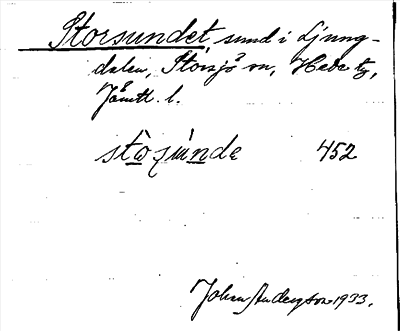 Storsundet, sund i Ljung-
dalen, Storsjö sn, Hede tg,
Jämtl. l.
sto̲ʂun̲de 452
Johan Anderson 1933.